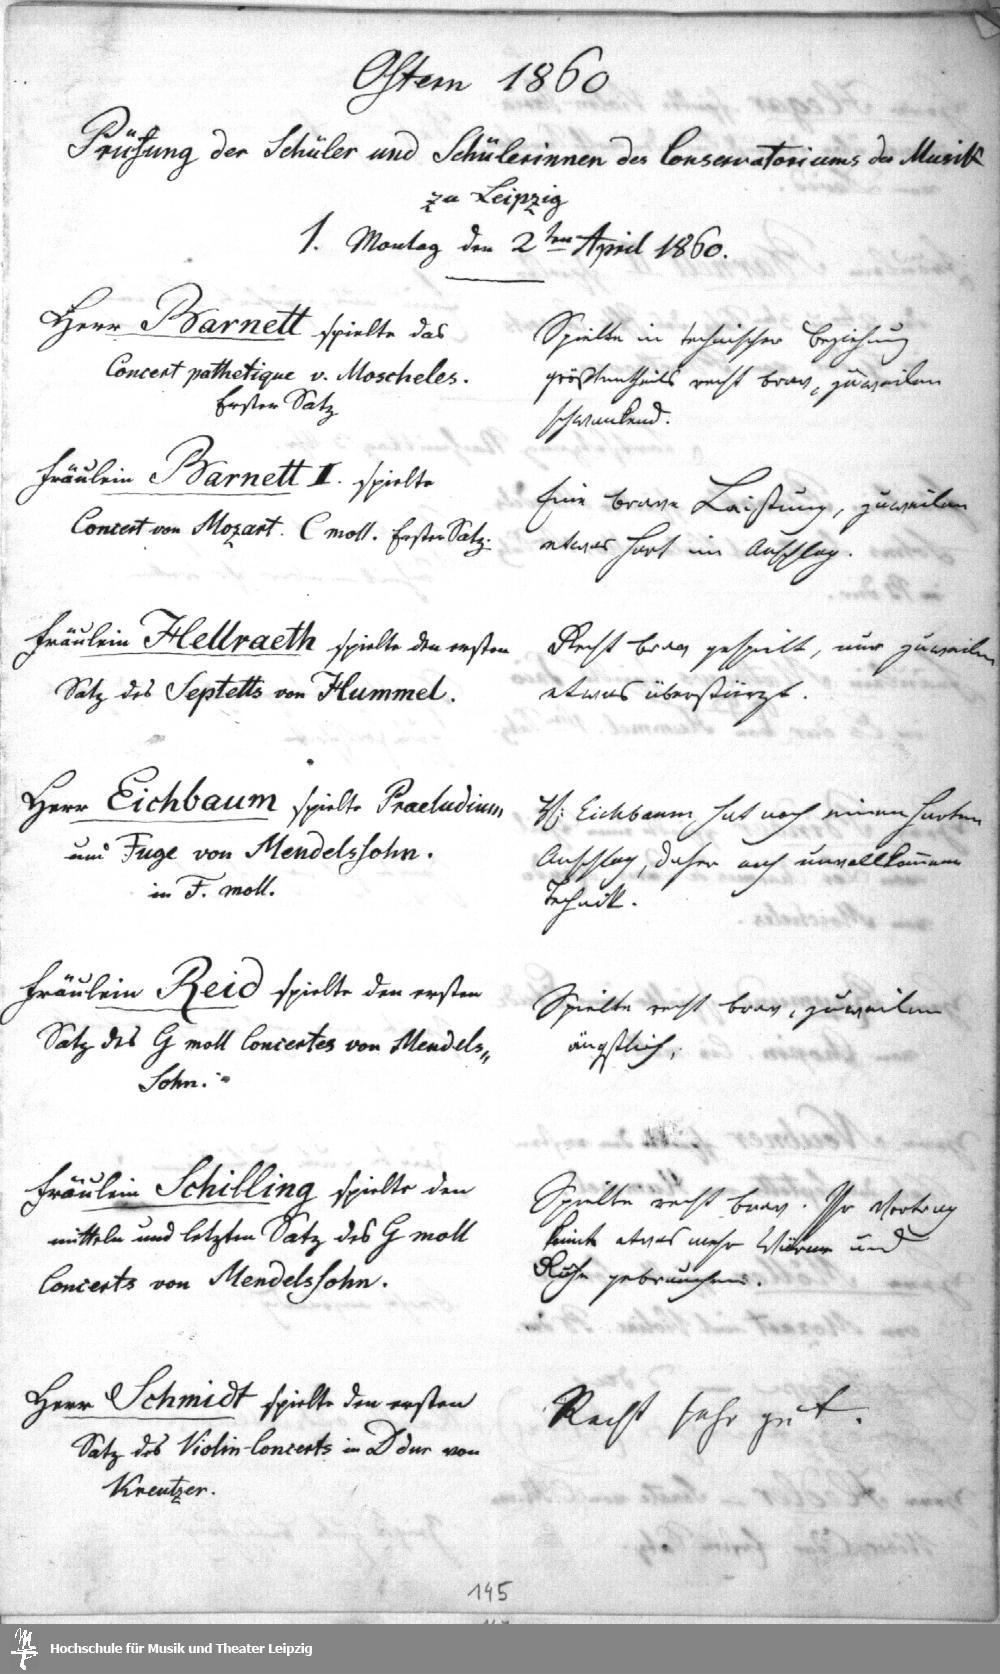 Ostern 1860
Prüfung der Schüler und Schülerinnen des Conservatoriums der Musik
zu Leipzig
1. Montag den 2ten April 1860.
Herr Barnett spielte das
Concert pathetique v. Moscheles.
Erster Satz
Spielte in technischer Beziehung
größtentheils recht brav, zuweilen
schwankend.
Fräulein Barnett II. spielte
Concert von Mozart. C moll. Erster Satz.
Eine brave Leistung, zuweilen
etwas hart im Anschlag.
Fräulein Hellraeth spielte den ersten
Satz des Septetts von Hummel.
Recht brav gespielt, nur zuweilen
etwas überstürzt.
Herr Eichbaum spielte Praeludium
und Fuge von Mendelssohn.
in F. moll.
H: Eichbaum hat noch einen harten
Anschlag, daher auch unvollkommene
Technik.
Fräulein Reid spielte den ersten
Satz des G moll Concertes von Mendels„
sohn.
Spielte recht brav, zuweilen
ängstlich,
Fräulein Schilling spielte den
mitteln und letzten Satz des G moll
Concerts von Mendelssohn.
Spielte recht brav. Ihr Vortrag
könnte etwas mehr Wärme und
Ruhe gebrauchen.
Herr Schmidt spielte den ersten
Satz des Violin-Concerts in D dur von
Kreutzer.
Recht sehr gut.
145
Hochschule für Musik und Theater Leipzig